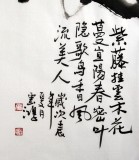 紫藤挂雲木花
蔓宜陽春密葉
隱歌鳥香風
流美人
歲次辰
年
夏月